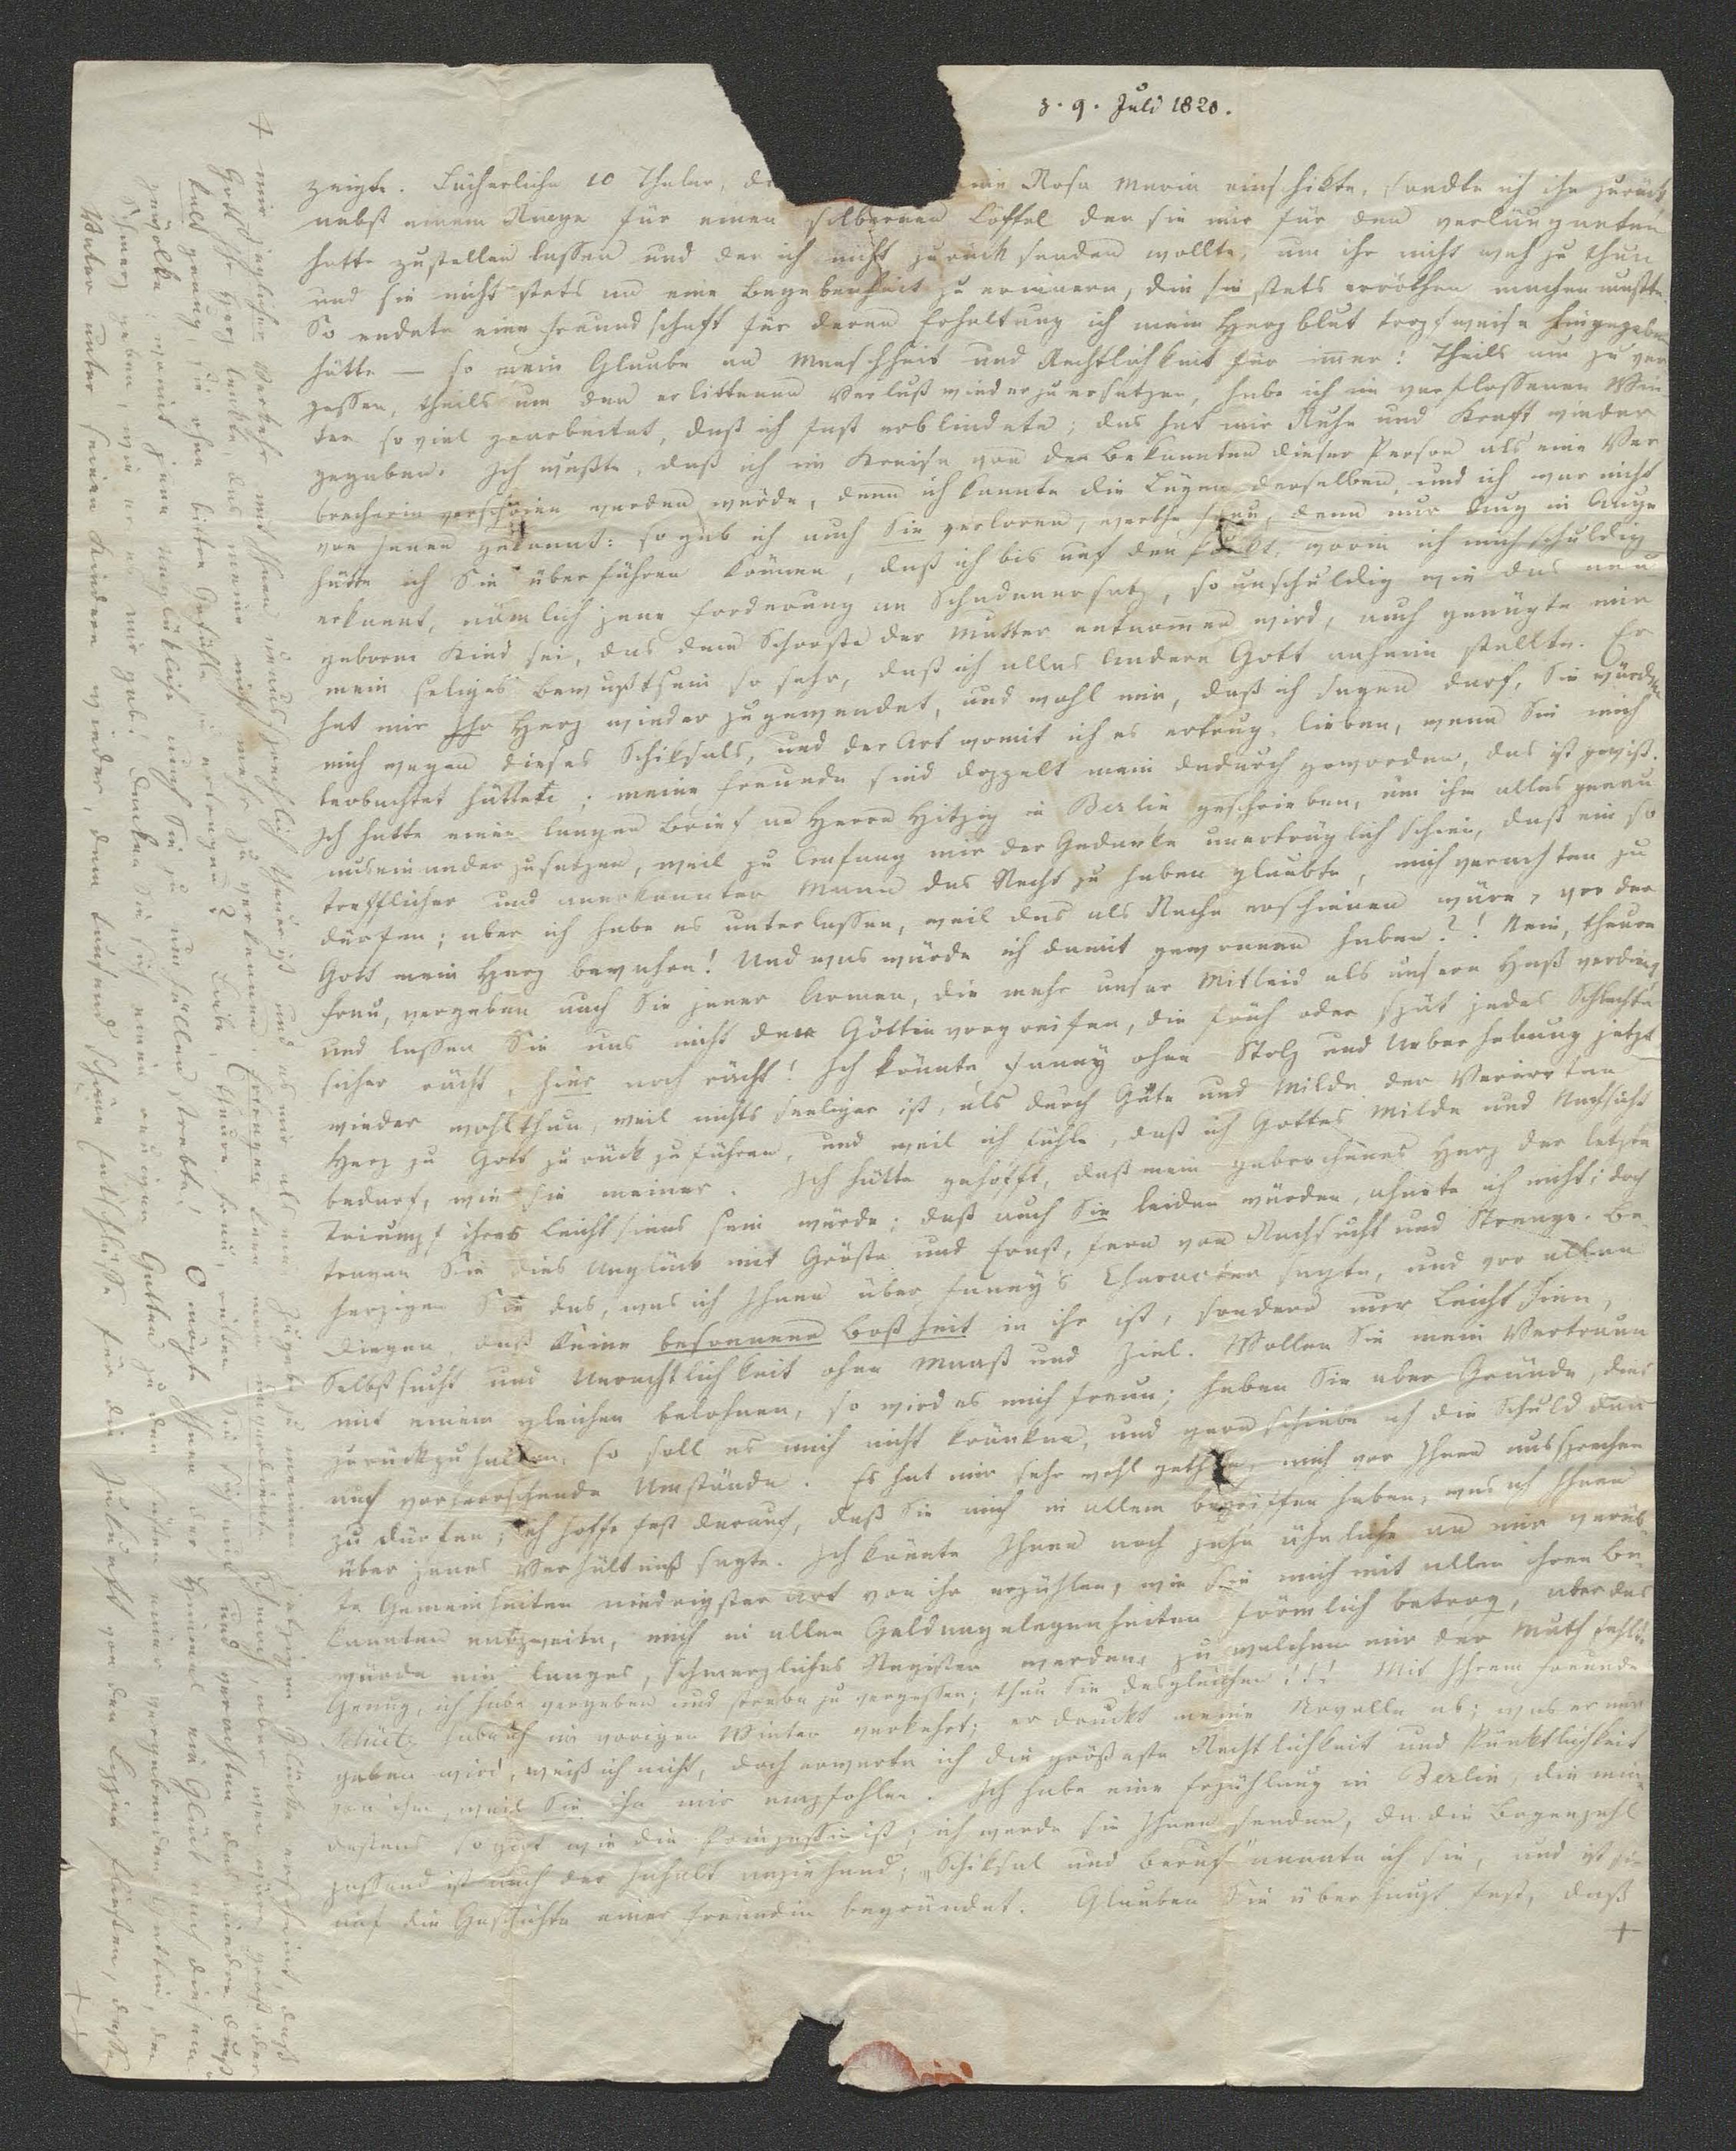 3. 9. Juli 1820.
zeigte. Lächerliche 10 Thaler, die mir Rosa Maria einschikte, sandte ich ihr zurück
nebst einem Auge für einen silbernen Löffel den sie mir für den verläugneten
hatte zustellen lassen und den ich nicht zurück senden wollte, um ihr nicht weh zu thun
und sie nicht stets an eine Begebenheit zu erinnern, die sie stets erröthen machen mußte.
So endete eine Freundschaft für deren Erhaltung ich mein Herzblut tropfweise hingegeben
hätte — so mein Glaube an Menschheit und Rechtlichkeit für immer! Theils um zu ver
gessen, theils um den erlittenen Verlust wieder zu ersetzen, habe ich im verflossenen Win
ter so viel gearbeitet, daß ich fast erblindete; das hat mir Ruhe und Kraft wieder
gegeben. Ich wußte, daß ich im Kreise von den Bekannten dieser Person als eine Ver
brecherin verschrien werden würde, denn ich kannte die Lügen derselben, und ich war nicht
von Jenen gekannt: so gab ich auch Sie verloren, werthe Frau, denn nur Aug in Auge
hätte ich Sie überführen können, daß ich bis auf den Punkt, worin ich mich schuldig
erkannt, nämlich jene Forderung an Schadenersatz, so unschuldig wie das neu
geborne Kind sei, das dem Schooße der Mutter entnommen wird, auch genügte mir
mein seliges Bewußtsein so sehr, daß ich alles Andere Gott anheim stellte. Er
hat mir Ihr Herz wieder zugewendet, und wohl mir, daß ich sagen darf, Sie würden
mich wegen dieses Schiksals, und der Art womit ich es ertrug, lieben, wenn Sie mich
beobachtet hätten; meine Freunde sind doppelt mein dadurch geworden, das ist gewiß.
Ich hatte einen langen Brief an Herrn Hitzig in Berlin geschrieben, um ihm alles genau
auseinander zu setzen, weil zu Anfang mir der Gedanke unerträglich schien, daß ein so
trefflicher und anerkannter Mann das Recht zu haben glaubte, mich verachten zu
dürfen; aber ich habe es unterlassen, weil das als Rache erschienen wäre, vor der
Gott mein Herz bewahre! Und was würde ich damit gewonnen haben?! Nein, theure
Frau, vergeben auch Sie jener Armen, die mehr unser Mitleid als unsern Haß verdient
und lassen Sie uns nicht der Göttin vorgreifen, die früh oder spät jedes Schlechte
sicher rächt, hier noch rächt! Ich könnte Fanny ohne Stolz und Ueberhebung jetzt
wieder wohlthun, weil nichts seeliger ist, als durch Güte und Milde der Verirrten
Herz zu Gott zurück zu führen, und weil ich fühle, daß ich Gottes Milde und Nachsicht
bedarf, wie sie meiner. Ich hätte gehofft, daß mein gebrochenes Herz der letzte
Triumpf ihres Leichtsinns sein würde; daß auch Sie leiden würden, ahnete ich nicht; doch
tragen Sie dies Unglück mit Größe und Ernst, fern von Rachsucht und Strenge. Be
herzigen Sie das, was ich Ihnen über Fanny's Character sagte, und vor allen
Dingen, daß keine besonnene Boßheit in ihr ist, sondern nur Leichtsinn,
Selbstsucht und Unrechtlichkeit ohne Maaß und Ziel. Wollen Sie mein Vertraun
mit einem gleichen belohnen, so wird es mich freun; haben Sie aber Gründe, dies
zurückzuhalten, so soll es mich nicht kränken, und gern schiebe ich die Schuld dann
auf vorherrschende Umstände. Es hat mir sehr wohl gethan, mich vor Ihnen aussprechen
zu dürfen; ich hoffe fest darauf, daß Sie mich in allem begriffen haben, was ich Ihnen
über jenes Verhältniß sagte. Ich könnte Ihnen noch zehn ähnliche an mir verüb
te Gemeinheiten niedrigster Art von ihr erzählen, wie sie mich mit allen ihren Be
kannten entzweite, mich in allen Geldangelegenheiten förmlich betrog, aber das
würde ein langes, schmerzliches Register werden, zu welchem mir der Muth fehlt.
Genug, ich habe vergeben und strebe zu vergessen; thun Sie desgleichen!!! Mit Ihrem Freunde
Schütz habe ich im vorigen Winter verkehrt; er druckt meine Novelle ab; was er mir
geben wird, weiß ich nicht, doch erwarte ich die größeste Rechtlichkeit und Pünktlichkeit
von ihm, weil Sie ihn mir empfohlen. Ich habe eine Erzählung in Berlin, die min
destens so gut wie die Prinzessin ist; ich werde sie Ihnen senden, da die Bogenzahl
passend ist auch der Inhalt anziehend; „Schiksal und Beruf" nannte ich sie, und ist sie
auf die Geschichte einer Freundin begründet. Glauben Sie überhaupt fest, daß
+
+ mir jeglicher Verkehr mit Ihnen unaussprechlich theuer ist und es mir als eine Zugabe zu meinem jetzigen Glücke erscheint, daß
Gott Ihr Herz lenkte, das meine nicht mehr zu verkennen. Ertragen kann man unverdiente Schmach, aber wer wäre groß oder
kalt genug, sie ohne bittre Gefühle zu ertragen? Liebe, theure Frau, retten Sie sich und verachten das niedre
gewölke, womit jene Unglükliche auch Sie zu umhüllen strebte! O mögte Ihnen der Himmel ein Glück nach diesem
Schmerz geben, wie er es mir gab! Denken Sie sich einen Gatten zu den Füßen einer vergebenden Gattin, den
Vater unter seinen Kindern wieder, dem tausend schöne Entschlüsse für die Zukunft von den Lippen fließen,
++